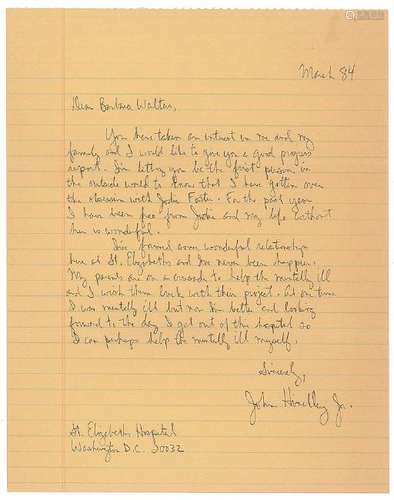 March 84
Dear Barbara Walters,
You have taken an interest in me and my
family and I would like to give you a good progress
report. I'm letting you be the first person in
the outside world to know that I have gotten over
the obsession with Jodie Foster. For the past year
I have been free from Jodie and my life without
her is wonderful.
I've formed some wonderful relationships
here at St. Elizabeths and I've never been happier.
My parents are on a crusade to help the mentally ill
and I wish them luck with their project. At one time
I was mentally ill but now I'm better and looking
forward to the day I get out of this hospital so
I can perhaps help the mentally ill myself.
Sincerely,
John Hinckley Jr.
St. Elizabeths Hospital
Washington D.C. 20032